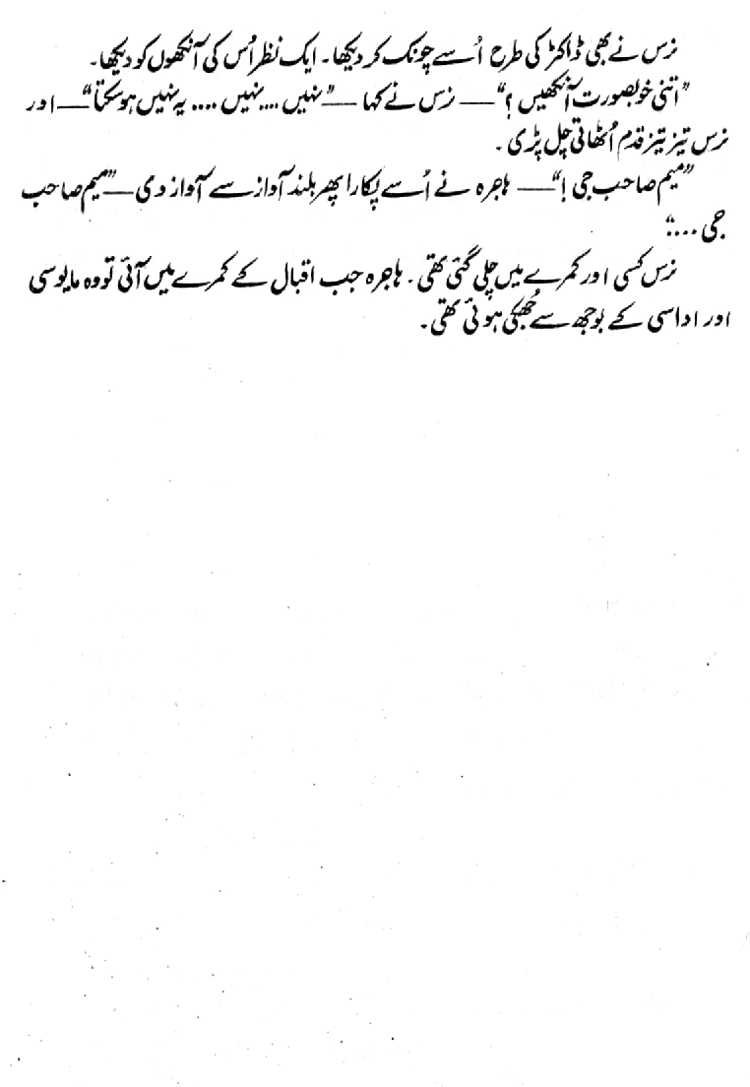 نرس نے بھی ڈاکٹر کی طرح اُسے چونک کر دیکھا۔ ایک نظر اُس کی آنکھوں کو دیکھا۔
”اتنی خوبصورت آنکھیں؟“ — نرس نے کہا — ”نہیں .... نہیں .... یہ نہیں ہو سکتا“ — اور
نرس تیز تیز قدم اُٹھاتی چل پڑی۔
”میم صاحب جی!“ — ہاجرہ نے اُسے پکارا پھر بلند آواز سے آواز دی — ”میم صاحب
جی ...“
نرس کسی اور کمرے میں چلی گئی تھی۔ ہاجرہ جب اقبال کے کمرے میں آئی تو وہ مایوسی
اور اداسی کے بوجھ سے جُھکی ہوئی تھی۔